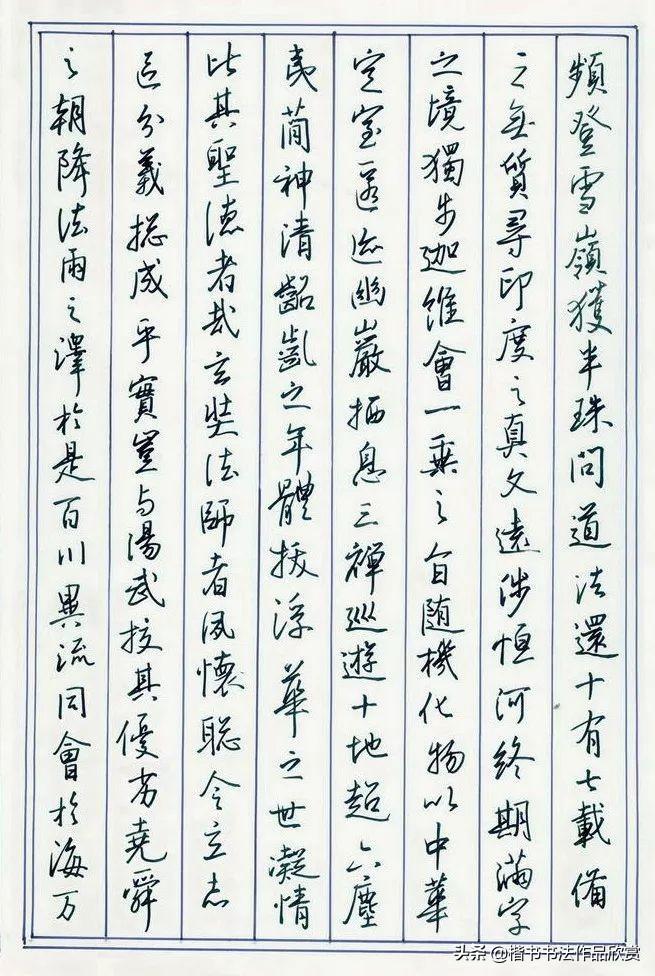 之朝降法雨之澤於是百川異流同會於海万
區分義揔成乎實豈与湯武校其優劣堯舜
比其聖德者哉玄奘法師者夙懷聡令立志
夷簡神清齠齔之年體拔浮華之世凝情
定室匿迹幽巖栖息三禪巡遊十地超六塵
之境獨步迦維會一乘之旨随機化物以中華
之無質尋印度之真文遠涉恒河終期滿字
頻登雪嶺獲半珠問道法還十有七載備
头条 @楷书书法作品欣赏